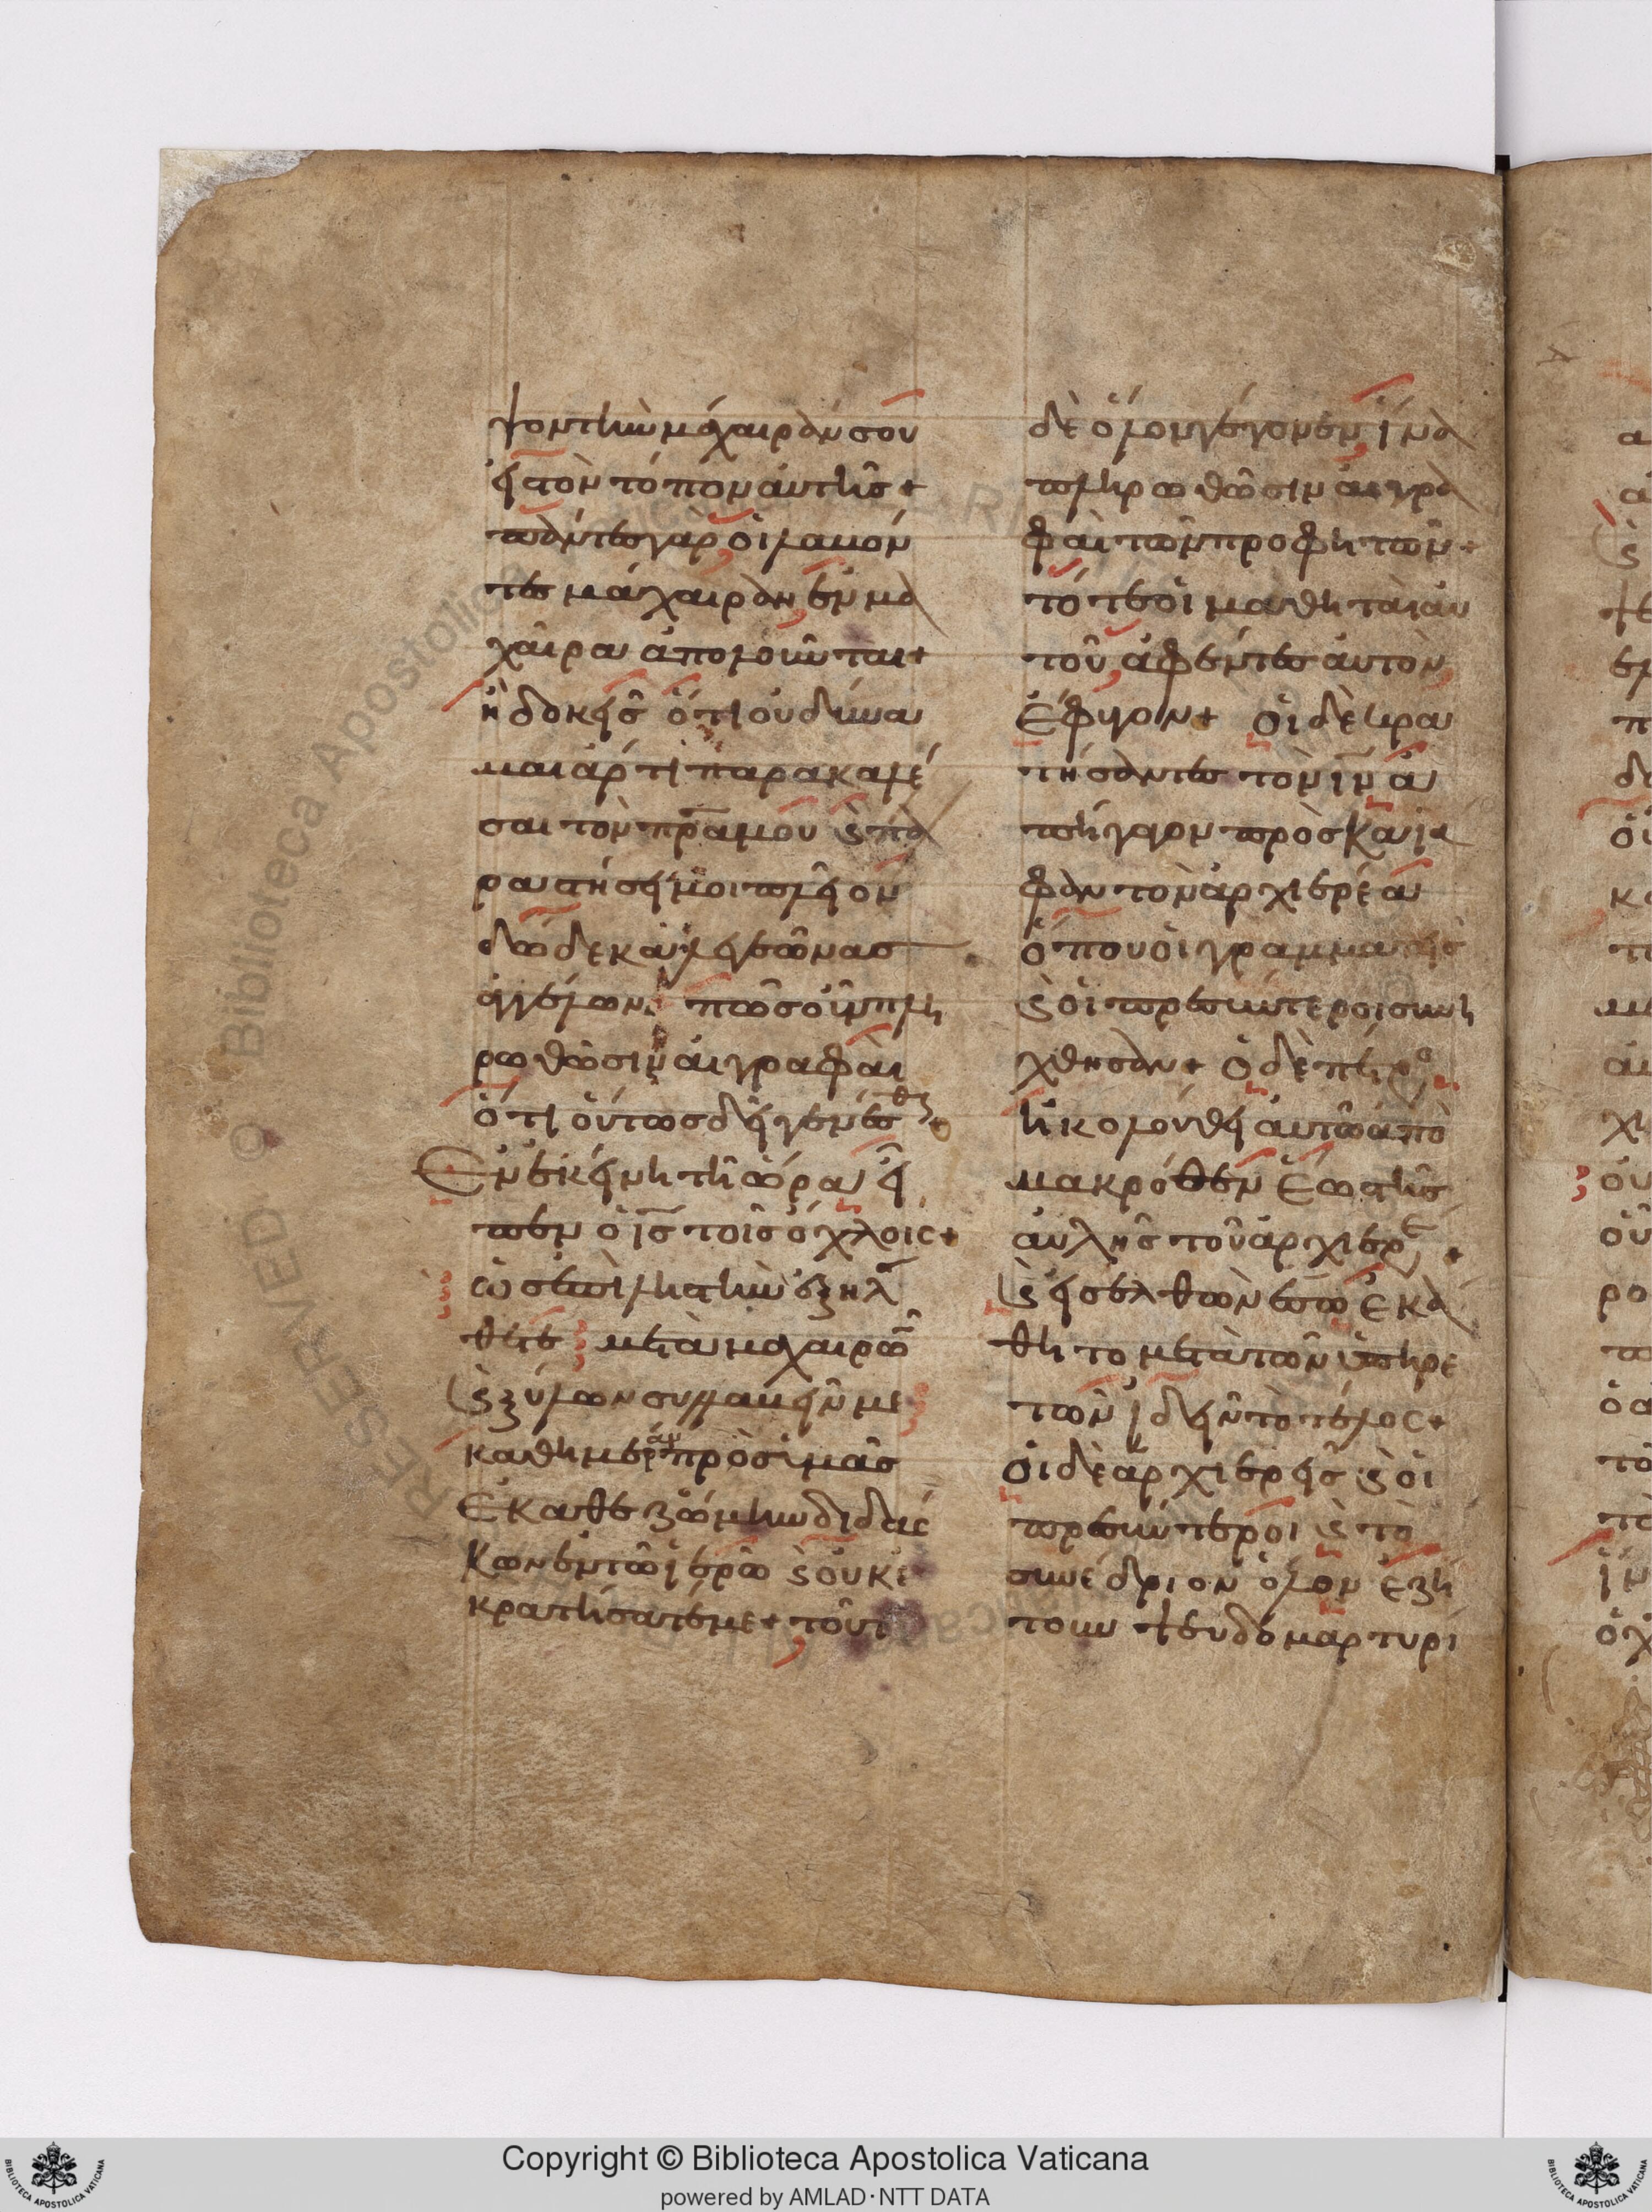 ψον τὴν μάχαιράν σου
εἰς τὸν τόπον αὐτῆς +
πάντες γὰρ οἱ λαβόν
τες μάχαιραν ἐν μα
χαίρα ἀπολοῦνται +
ἢ δοκεῖς ὅτι οὐ δύνα
μαι ἄρτι παρακαλέ
σαι τὸν πρ̅α μου ϛ πα
ραστήσει μοι πλεῖον
δώδεκα λεγεῶνας
ἀγγέλων πῶς οὖν πλη
ρωθῶσιν αἱ γραφαὶ
ὅτι οὕτως δεῖ γενέσθ +
Ἐν ἐκείνη τῆ ὥρα εἶ
πεν ὁ ις̅ τοῖς ὄχλοις +
ὡς ἐπὶ ληστὴν ἐξήλ
θετε μετὰ μαχαιρῶν
ϛ ξύλων συλλαβεῖν με
καθημέραν πρὸς ὑμᾶς
ἐκαθεζόμην διδάσ
κων ἐν τῶ ἱερῶ ϛ οὐκ ἐ
κρατήσατέ με + τοῦτ
δὲ ὅλον γέγονεν ἵνα
πληρωθῶσιν αἱ γρα
φαὶ τῶν προφητῶν +
τότε οἱ μαθηταὶ αὐ
τοῦ ἀφέντες αὐτὸν
ἔφυγον + οἱ δὲ κρα
τήσαντες τὸν ιν̅ ἀ
πήγαγον πρὸς Καϊά
φαν τὸν ἀρχιερέα
ὅπου οἱ γραμματεῖς
ϛ οἱ πρεσβύτεροι συνή
χθησαν + ὁ δὲ πέτρο
ἠκολούθει αὐτῶ ἀπὸ
μακρόθεν ἕως τῆς
αὐλῆς τοῦ ἀρχιερέ +
ϛ εἰσελθὼν ἔσω ἐκά
θητο μετὰ τῶν ὑπηρε
τῶν ἰδεῖν τὸ τέλος +
οἱ δὲ ἀρχιερεῖς ϛ οἱ
πρεσβύτεροι ϛ τὸ
συνέδριον ὅλον ἐζή
τουν ψευδομαρτυρί
Copyright © Biblioteca Apostolica Vaticana
powered by AMLAD·NTT DATA